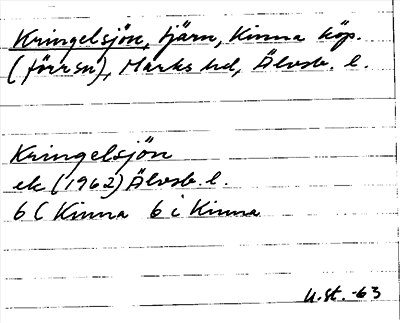 Kringelsjön, tjärn, Kinna köp.
(förrsn), Marks hd, Älvsb. l.
Kringelsjön
ek (1962) Älvsb. l.
6 C Kinna 6 i Kinna
U.st. -63